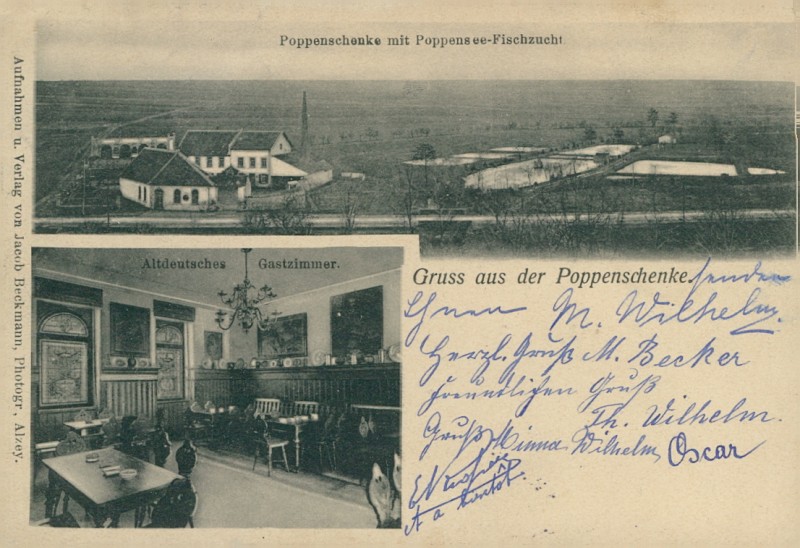 Poppenschenke mit Poppensee-Fischzucht
Aufnahmen u. Verlag von Jacob Beckmann, Photogr., Alzey.
Altdeutsches Gastzimmer.
Gruss aus der Poppenschenke. senden
Ihnen M. Wilhelm.
Herzl. Gruß M. Becker
freundlichen Gruß
Th. Wilhelm.
Gruß Minna Wilhelm, Oscar